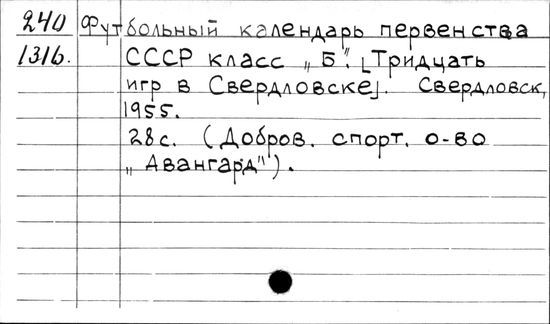 240 Футбольный календарь первенства
1316. СССР класс „Б". [Тридцать
игр в Свердловске]. Свердловск,
1955.
28с. (Добров. спорт. о-во
„Авангард").